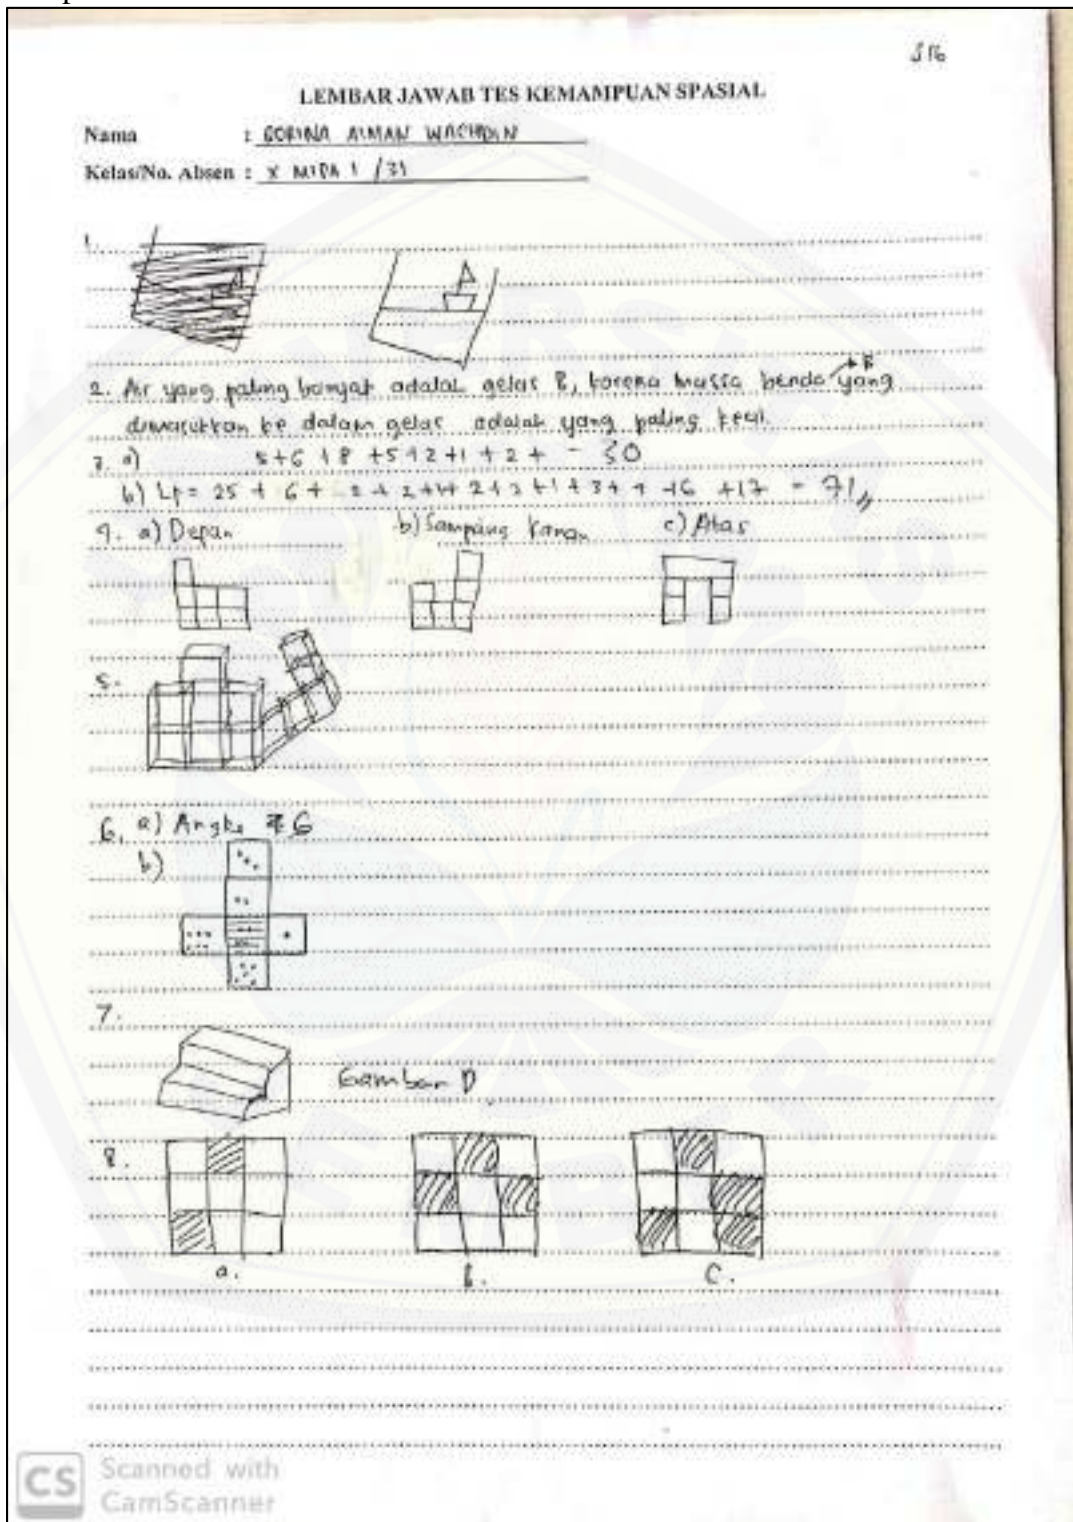 S16
LEMBAR JAWAB TES KEMAMPUAN SPASIAL
Nama :  AIMAN
Kelas/No. Absen : X MIPA 1 / 31
1.
2. Air yang paling banyak adalah gelas B, karena massa benda yang
dimasukkan ke dalam gelas adalah yang paling kecil.
3. a) 5+6+8+5+2+1+2+ = 30
b) Lp = 25 + 6 + = 71
4. a) Depan b) Samping Kanan c) Atas
5.
6. a) Angka 6
b)
7.
Gambar D
8.
a. b. c.
CS Scanned with
CamScanner